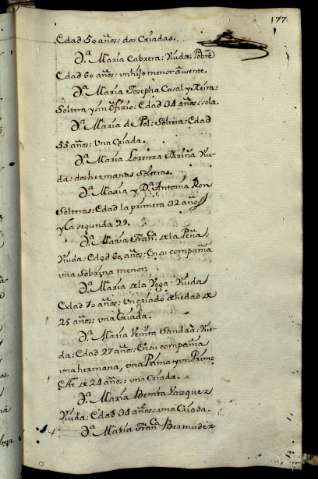 177.
Edad 60 años: dos Criadas.
D.ª Maria Cabrera: Viuda: Pobre
Edad 60 años: un hijo menor ausente.
D.ª Maria Josepha Casal y
Soltera y sin Oficio: Edad 34 años: sola.
D.ª Maria de Pol: Soltera: Edad
55 años: Una Criada.
D.ª Maria Lorenza Viu-
da: dos hermanas Solteras.
D.ª Maria y D.ª Antonia Ron
Solteras: Edad la primera 32 años
y la segunda 29.
D.ª Maria Fran.ca de la Peña
Viuda: Edad 60 años: En su compañia
una Sobrina menor.
D.ª Maria de la Vega: Viuda
Edad 70 años: Un criado de hedad de
25 años: una Criada.
D.ª Maria Benita Viu-
da: Edad 27 años: En su compañia
una hermana, una Prima y un Primo
de 24 años: una Criada.
D.ª Maria Benita Vazquez
Viuda: Edad 30 años: una Criada.
D.ª Maria Fran.ca Bermudez